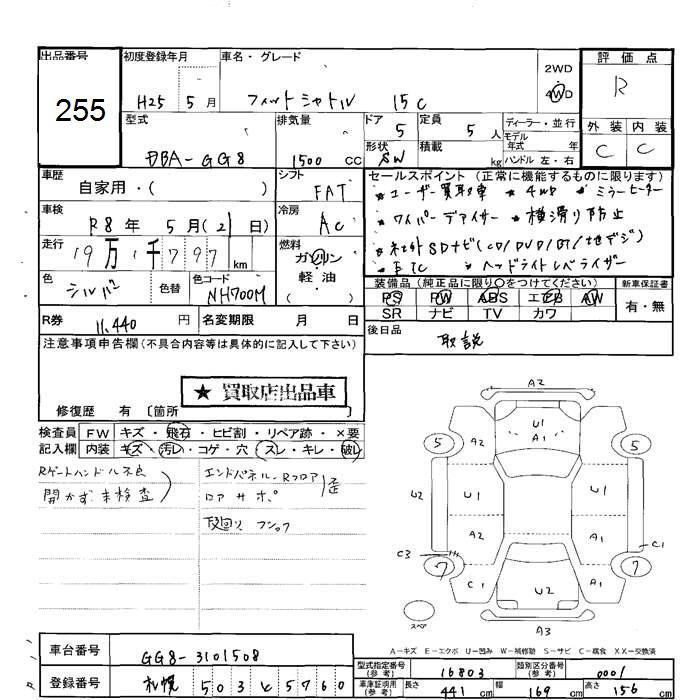 出品番号
255
初度登録年月
H25 5月
車名・グレード
フィットシャトル 15C
2WD
4WD
評価点
R
外装 内装
C C
型式
DBA-GG8
排気量
1500 CC
ドア
5
定員
5人
形状
SW
積載
kg
ディーラー・並行
モデル年式 年
ハンドル 左・右
車歴
自家用・( )
シフト
FAT
車検
R8年 5月(21日)
冷房
AC
走行
19万1千797km
燃料
ガソリン
軽・油
( )
色
シルバ
色替
色コード
NH700M
セールスポイント (正常に機能するものに限ります)
★ユーザー買取車 ★4WD ★ミラーヒーター
★ワイパーデアイサー ★横滑り防止
★社外SDナビ(CD/DVD/BT/地デジ)
★ETC ★ヘッドライトレベライザー
装備品(純正品に限り○をつけてください)
PS PW ABS エアB AW
SR ナビ TV カワ
新車保証書
有・無
R券
11,440 円
名変期限 月 日
後日品
取説
注意事項申告欄(不具合内容等は具体的に記入して下さい)
★ 買取店出品車
修復歴 有 〔箇所 〕
検査員記入欄
FW キズ・飛石・ヒビ割・リペア跡・×要
内装 キズ・汚レ・コゲ・穴・スレ・キレ・破レ
Rゲートハンドル不良
開かず未検査
エンドパネル、Rフロア
ロアサポ
歪
下廻り
A2
U1
A1
5
5
A2
A1
U2
U1
U1
A2
A1
C3
C1
7
7
C1
U2
A1
A3
スペア
A-キズ E-エクボ U-凹み W-補修跡 S-サビ C-腐食 XX-交換済
車台番号
GG8-3101508
登録番号
札幌 503 と 5760
型式指定番号(参考)
16803
類別区分番号(参考)
0001
車庫証明用(参考)
長さ 441 cm
幅 169 cm
高さ 156 cm